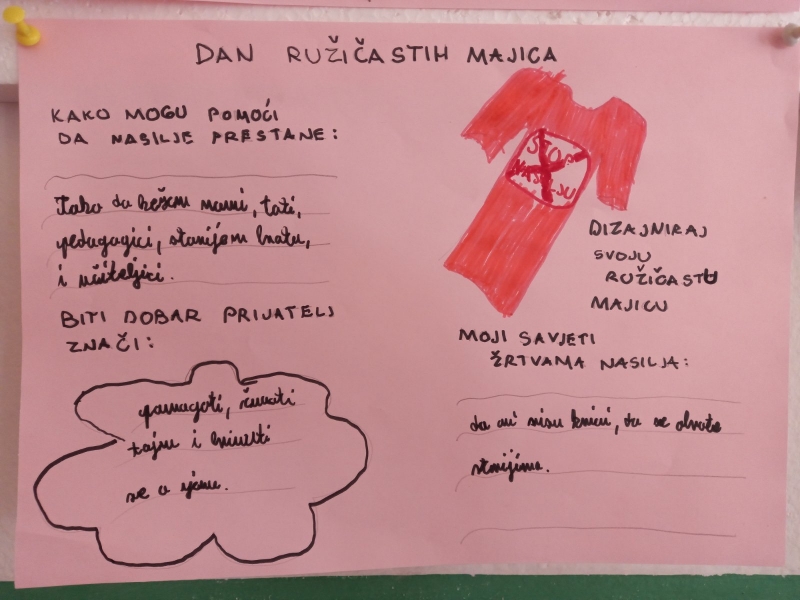 DAN RUŽIČASTIH MAJICA
KAKO MOGU POMOĆI
DA NASILJE PRESTANE:
Tako da kežem mami, tati,
pedagogici, starijem bratu,
i učiteljici.
BITI DOBAR PRIJATELJ
ZNAČI:
pomagati, čuvati
tajnu i brinuti
se o njemu.
STOP
NASILJU
DIZAJNIRAJ
SVOJU
RUŽIČASTU
MAJICU
MOJI SAVJETI
ŽRTVAMA NASILJA:
da oni nisu krivi, da se obrate
starijima.